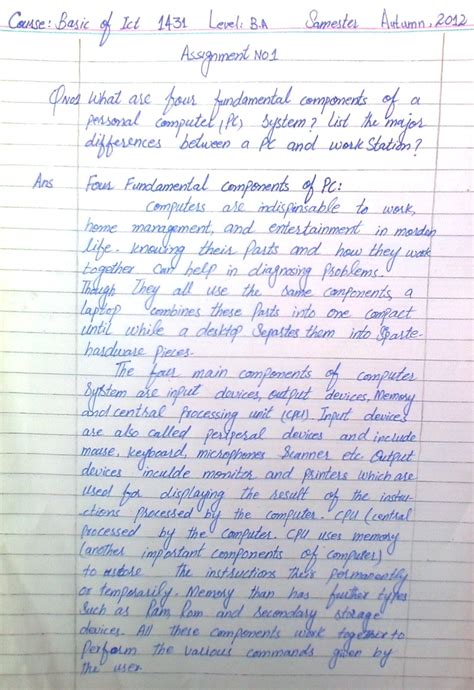 Course: Basic of Ict 1431 Level: B.A Samester Autumn, 2012
Assignment No1
QNo1 What are four fundamental components of a
personal computer (PC) System? List the major
differences between a PC and work Station?
Ans Four Fundamental components of PC:
Computers are indispensable to work,
home management, and entertainment in morden
life. Knowing their Parts and how they work
together can help in diagnosing Problems.
Though They all use the same components, a
laptop combines these Parts into one compact
until while a desktop Separates them into
hardware pieces.
The four main components of computer
System are input devices, output devices, Memory
and central processing unit (CPU). Input devices
are also called devices and include
mouse, keyboard, microphones Scanner etc Output
devices inculde monitor and printers which are
used for displaying the result of the instru-
ctions processed by the computer. CPU (central
Processed by the computer. CPU uses memory
(another important components of computer)
to the instructions permanently
or temporarily. Memory than has further types
Such as Ram Rom and secondary storage
devices. All these components work together to
Perform the various commands given by
the user.